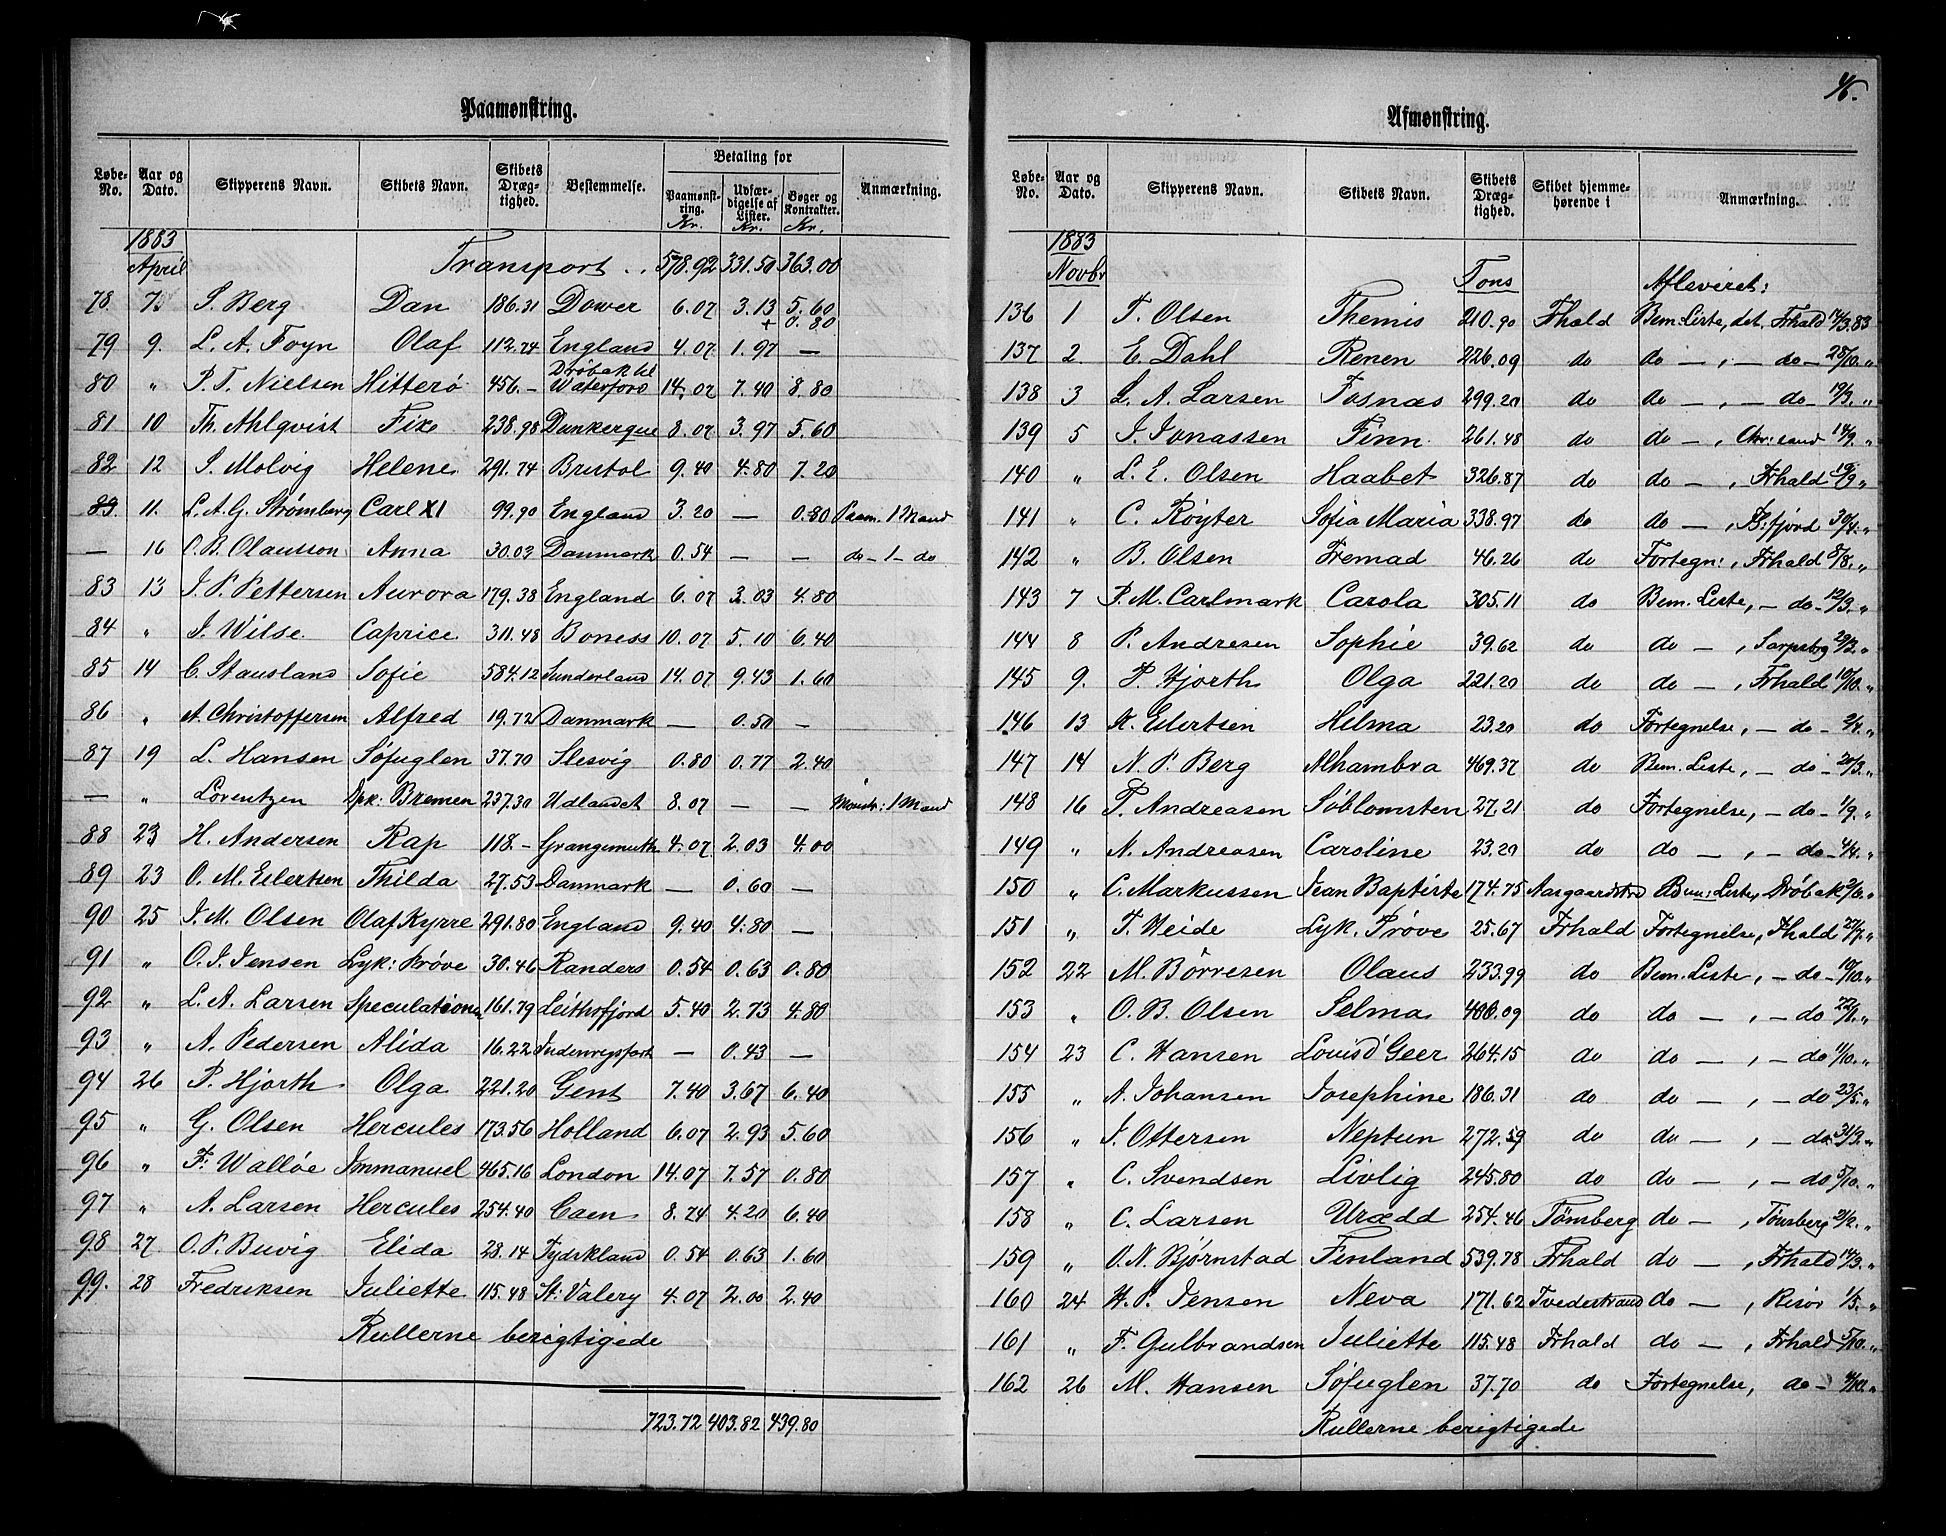 Paamønstring.
Løbe-No. | Aar og Dato. | Skipperens Navn. | Skibets Navn. | Skibets Dræg-tighed. | Bestemmelse. | Betaling for | Anmærkning.
Paamønst-ring. Kr. | Udfær-digelse af Lister. Kr. | Bøger og Kontrakter. Kr.
1883 April Transport . . 578.92 331.50 363.00
78. 7 S. Berg Dan 186.31 Dower 6.07 3.13 5.60 + 0.80
79 9. L. A. Foyn Olaf 112.74 England 4.07 1.97 —
80 " P. T. Nielsen Hitterö 456.— Dröbak til Waterford 14.07 7.40 8.80
81 10 Th. Ahlqvist Fix 238.98 Dunkerque 8.07 3.97 5.60
82 12 S. Molvig Helene 291.74 Bristol 9.40 4.80 7.20
83. 11. L. A. G. Strömberg Carl XI 99.90 England 3.20 — 0.80 Paam. 1 Mand
— 16 O. B. Olausson Anna 30.02 Danmark 0.54 — — do - 1 - do
83 13 J. P. Pettersen Aurora 179.38 England 6.07 3.03 4.80
84 " J. Wilse Caprice 311.48 Boness 10.07 5.10 6.40
85 14 C. Stausland Sofie 584.12 Sunderland 14.07 9.43 1.60
86 " A. Christoffersen Alfred 19.72 Danmark — 0.50 —
87 19 L. Hansen Söfuglen 37.70 Slesvig 0.80 0.77 2.40
— " Lorentzen Dpk: Bremen 237.30 Udlandet 8.07 — — Mönstr: 1 Mand
88 23 H. Andersen Rap 118.— Grangemuth 4.07 2.03 4.00
89 23 O. M. Eilertsen Thilda 27.53 Danmark — 0.60 —
90 25 J. M. Olsen Olaf Kyrre 291.80 England 9.40 4.80 —
91 " O. J. Jensen Lyk: Pröve 30.46 Randers 0.54 0.63 0.80
92 " L. A. Larsen Speculation 161.79 Leithsfjord 5.40 2.73 4.80
93 " A. Pedersen Alida 16.22 Indenrigsfart — 0.43 —
94 26 P. Hjorth Olga 221.20 Gent 7.40 3.67 6.40
95 " G. Olsen Hercules 173.56 Holland 6.07 2.93 5.60
96 " F. Wallöe Immanuel 465.16 London 14.07 7.57 0.80
97 " A. Larsen Hercules 254.40 Caen 8.74 4.20 6.40
98 27 O. P. Buvig Elida 28.14 Tydskland 0.54 0.63 1.60
99. 28 Fredriksen Juliette 115.48 St: Valery 4.07 2.00 2.40
Rullerne berigtigede
723.72 403.82 439.80
Afmønstring.
Løbe-No. | Aar og Dato. | Skipperens Navn. | Skibets Navn. | Skibets Dræg-tighed. | Skibet hjemme-hørende i | Anmærkning.
1883 Novbr Tons Afleveret:
136 1 T. Olsen Themis 210.90 Fhald Bem. Liste, det. Frhald 14/3 83
137 2 E. Dahl Renen 226.09 do do — , — do - 28/10. "
138 3 L. A. Larsen Fosnæs 299.20 do do — , — do 19/3. "
139 5 J. Jonassen Finn 261.48 do do — , Chr:sand 14/9. "
140 " L. E. Olsen Haabet 326.87 do do — , Frhald 19/9 "
141 " C. Röyter Sofia Maria 338.97 do do — , B:fjord 30/4. "
142 " B. Olsen Fremad 46.26 do Fortegn: , Frhald 8/8. "
143 7 P. M. Carlmark Carola 305.11 do Bem. Liste, — do - 12/3. "
144 8 P. Andresen Sophie 39.62 do do — , Sarpsbrg 29/3. "
145 9. P. Hjorth Olga 221.20 do do — , Frhald 10/10. "
146 13 K. Eilertsen Hilma 23.20 do Fortegnelse, — do - 2/4. "
147 14 N. P. Berg Alhambra 469.37 do Bem. Liste, — do - 20/3. "
148 16 P. Andreasen Söblomsten 27.21 do Fortegnelse, — do - 1/9. "
149 " N. Andreasen Caroline 23.29 do do — , — do - 4/4. "
150 " C. Markussen Jean Baptiste 174.75 Aasgaardstrd Bem: Liste, Dröbak 2/6. "
151 " T. Weide Lyk. Pröve 25.67 Frhald Fortegnelse, Fhald 27/7. "
152 22 M. Börresen Olaus 233.99 do Bem. Liste, — do - 10/10. "
153 " O. B. Olsen Selma 400.09 do do — , — do 22/1. "
154 23 C. Hansen Louis d'Geer 264.15 do do — , — do 11/10. "
155 " A. Johansen Josephine 186.31 do do — , — do 23/5. "
156 " J. Ottersen Neptun 272.59 do do — , — do 31/3. "
157 " C. Svendsen Livlig 245.80 do do — , — do 5/10. "
158 " C. Larsen Urædd 254.46 Tönsberg do — , Tönsberg 21/2. "
159 " O. N. Björnstad Finland 539.78 Frhald do — , Frhald 14/3. "
160 24 H. P. Jensen Neva 171.62 Tvedestrand do — , Risör 1/5. "
161 " F. Gulbrandsen Juliette 115.48 Frhald do — , Frhald 5/10. "
162 26 M. Hansen Söfuglen 37.70 do Fortegnelse, do - 4/10. "
Rullerne berigtigede